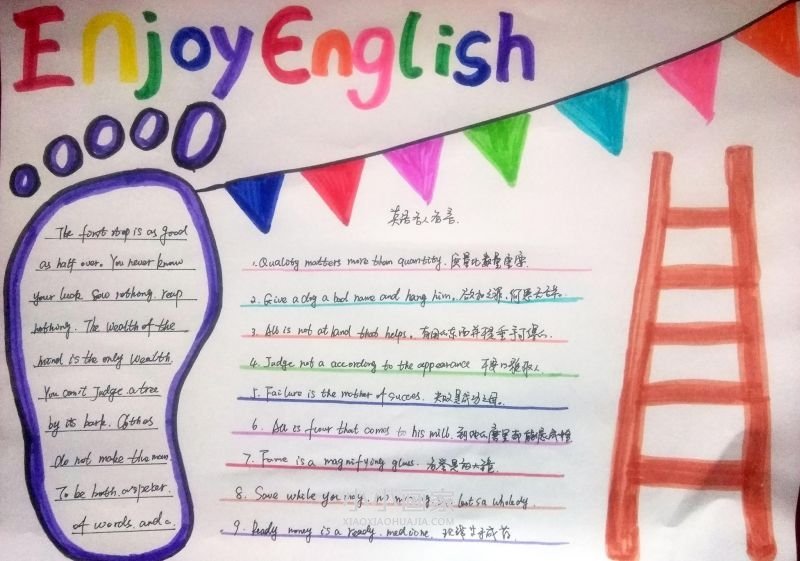 Enjoy English
The first step is as good
as half over. You never know
your luck. Sow nothing. reap
nothing. The wealth of the
mind is the only wealth.
You can't Judge a tree
by its bark. Clothes
do not make the man
To be both a speaker.
of words. and a.
英语名人名言.
1. Quality matters more than quantity. 质量比数量重要.
2. Give a dog a bad name and hang him.
3. All is not at hand that helps.
4. Judge not a according to the appearance 不要以貌取人.
5. Failure is the mother of succes. 失败是成功之母。
6. All is flour that comes to his mill.
7. Fame is a magnifying glass. 名誉是放大镜.
8. Save while you may
9. Ready money is a ready. medicine.
小小画家
XIAOXIAOHUAJIA.COM